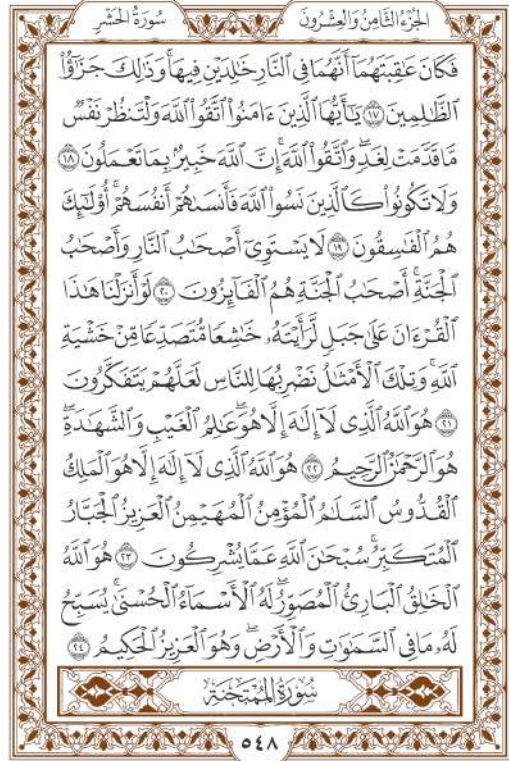 سُورَةُ الحَشْرِ
الجُزْءُ الثَّامِنُ وَالعِشْرُونَ
فَكَانَ عَٰقِبَتَهُمَآ أَنَّهُمَا فِي ٱلنَّارِ خَٰلِدَيْنِ فِيهَاۚ وَذَٰلِكَ جَزَٰٓؤُاْ
ٱلظَّٰلِمِينَ ١٧ يَٰٓأَيُّهَا ٱلَّذِينَ ءَامَنُواْ ٱتَّقُواْ ٱللَّهَ وَلْتَنظُرْ نَفْسٌ
مَّا قَدَّمَتْ لِغَدٍۖ وَٱتَّقُواْ ٱللَّهَۚ إِنَّ ٱللَّهَ خَبِيرُۢ بِمَا تَعْمَلُونَ ١٨
وَلَا تَكُونُواْ كَٱلَّذِينَ نَسُواْ ٱللَّهَ فَأَنسَىٰهُمْ أَنفُسَهُمْۚ أُوْلَٰٓئِكَ
هُمُ ٱلْفَٰسِقُونَ ١٩ لَا يَسْتَوِيٓ أَصْحَٰبُ ٱلنَّارِ وَأَصْحَٰبُ
ٱلْجَنَّةِۚ أَصْحَٰبُ ٱلْجَنَّةِ هُمُ ٱلْفَآئِزُونَ ٢٠ لَوْ أَنزَلْنَا هَٰذَا
ٱلْقُرْءَانَ عَلَىٰ جَبَلٍ لَّرَأَيْتَهُۥ خَٰشِعًا مُّتَصَدِّعًا مِّنْ خَشْيَةِ
ٱللَّهِۚ وَتِلْكَ ٱلْأَمْثَٰلُ نَضْرِبُهَا لِلنَّاسِ لَعَلَّهُمْ يَتَفَكَّرُونَ
٢١ هُوَ ٱللَّهُ ٱلَّذِي لَآ إِلَٰهَ إِلَّا هُوَۖ عَٰلِمُ ٱلْغَيْبِ وَٱلشَّهَٰدَةِۖ
هُوَ ٱلرَّحْمَٰنُ ٱلرَّحِيمُ ٢٢ هُوَ ٱللَّهُ ٱلَّذِي لَآ إِلَٰهَ إِلَّا هُوَ ٱلْمَلِكُ
ٱلْقُدُّوسُ ٱلسَّلَٰمُ ٱلْمُؤْمِنُ ٱلْمُهَيْمِنُ ٱلْعَزِيزُ ٱلْجَبَّارُ
ٱلْمُتَكَبِّرُۚ سُبْحَٰنَ ٱللَّهِ عَمَّا يُشْرِكُونَ ٢٣ هُوَ ٱللَّهُ
ٱلْخَٰلِقُ ٱلْبَارِئُ ٱلْمُصَوِّرُۖ لَهُ ٱلْأَسْمَآءُ ٱلْحُسْنَىٰۚ يُسَبِّحُ
لَهُۥ مَا فِي ٱلسَّمَٰوَٰتِ وَٱلْأَرْضِۖ وَهُوَ ٱلْعَزِيزُ ٱلْحَكِيمُ ٢٤
سُورَةُ المُمْتَحنَةِ
٥٤٨